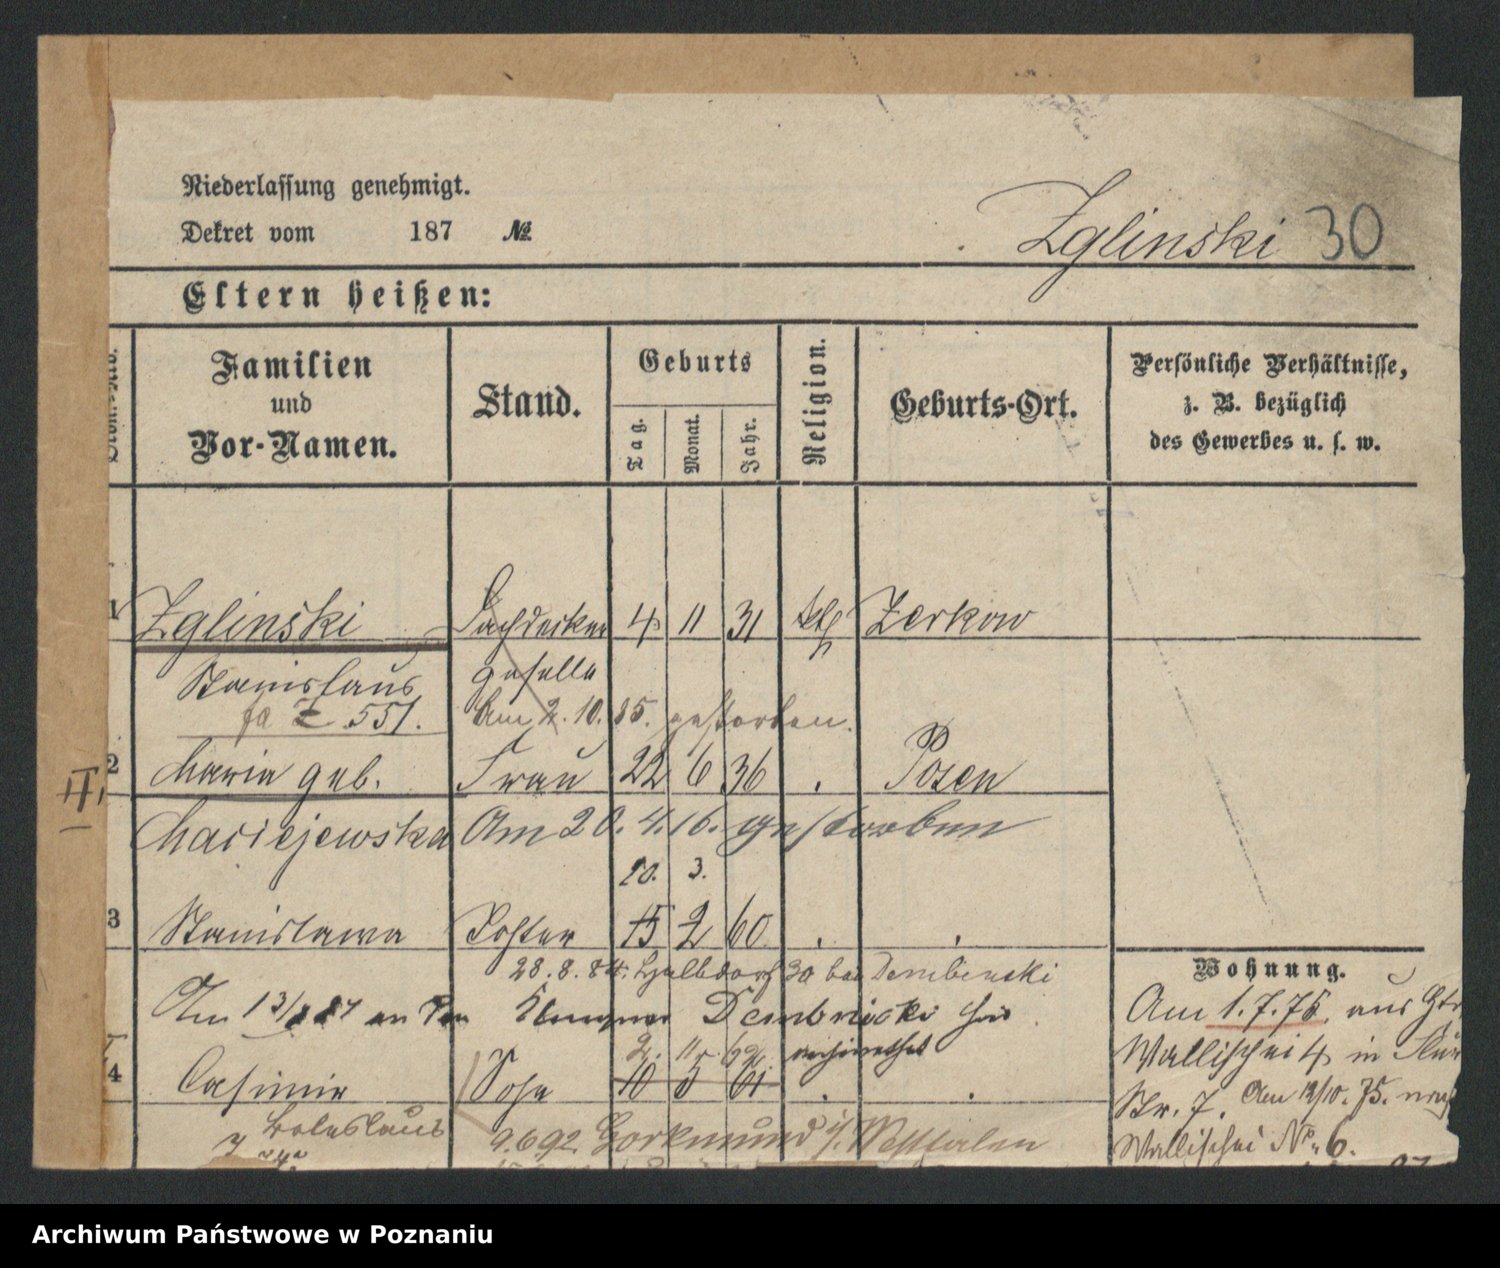 Niederlassung genehmigt.
Dekret vom 187 №
Zglinski 30
Eltern heißen:
Familien
und
Vor-Namen.
Stand.
Geburts
Tag.
Monat.
Jahr.
Religion.
Geburts-Ort.
Persönliche Verhältnisse,
z. B. bezüglich
des Gewerbes u. s. w.
1 Zglinski Dachdecker 4 11 31 kth Zerkow
Stanislaus geselle
Z 551. Am 2. 10. 85. gestorben.
2 Maria geb. Frau 22 6 36 . Posen
III
Maciejewska Am 20. 4. 16. gestorben
20. 3.
3 Stanislawa Tochter 15 2 60 . .
28. 8. 84. Halbdorf 30 bei Dembinski
Am 13/ 87 an den Klempner Dembnicki hier
verheirathet
2. 11 62
4 Casimir Sohn 10 5 61 . .
Boleslaus 9.6.92 Dortmund i/ Westfalen
Wohnung.
Am 1. 7. 75. aus
Wallischei 4 in
Str. 7. Am 12/10. 75. nach
Wallischei No 6.
Archiwum Państwowe w Poznaniu